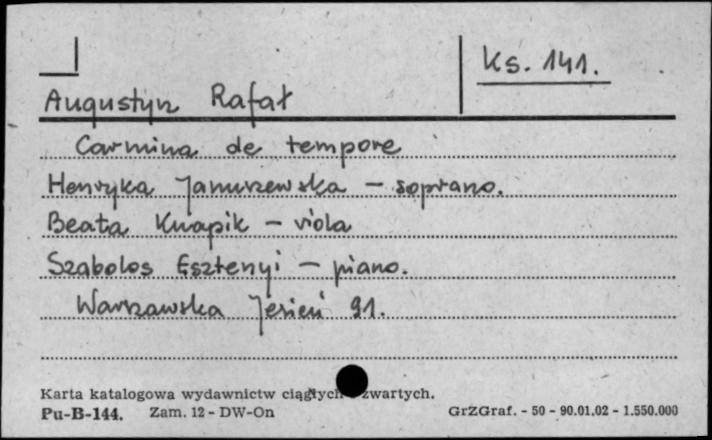 Ks. 141.
Augustyn Rafał
Carmina de tempore
Henryka Januszewska – soprano.
Beata Knapik – viola
Szabolos Esztenyi – piano.
Warszawska Jesień 91.
Karta katalogowa wydawnictw ciągłych zwartych.
Pu-B-144. Zam. 12 - DW-On GrZGraf. - 50 - 90.01.02 - 1.550.000